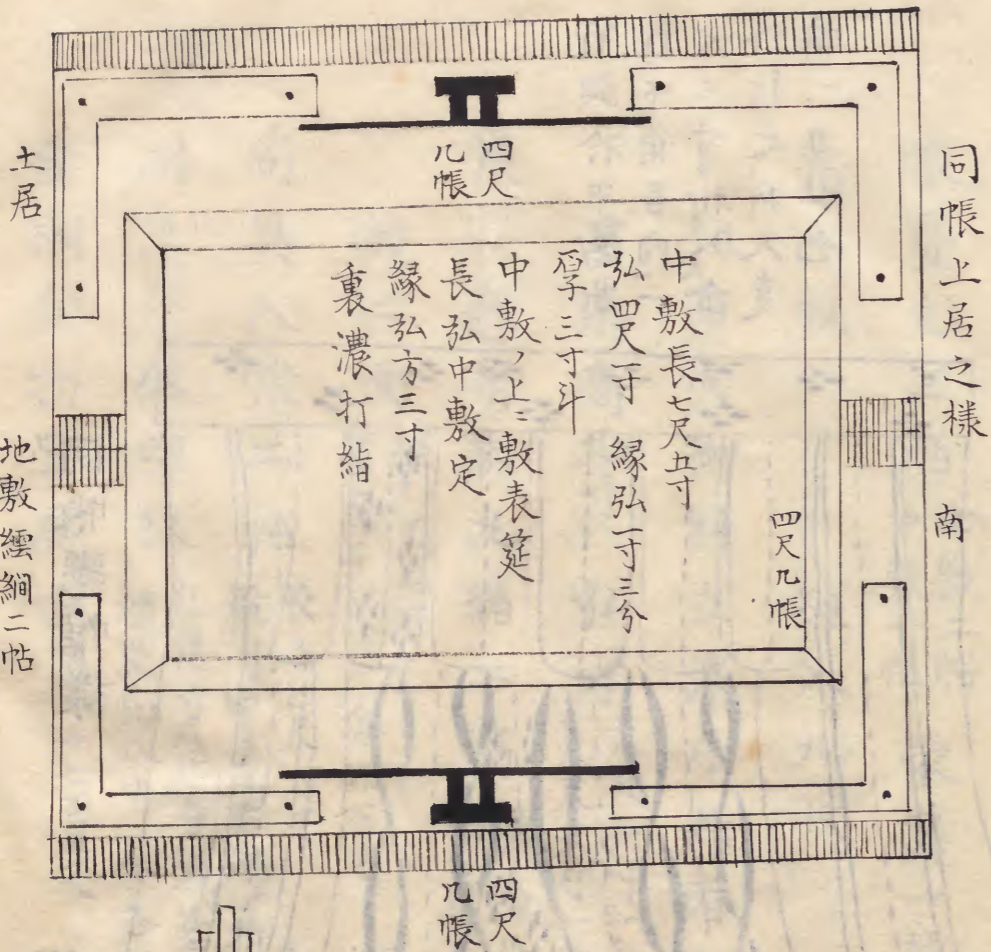 同帳上居之様
南
四尺
几帳
四尺几帳
中敷長七尺五寸
弘四尺一寸 縁弘一寸三分
厚三寸斗
中敷ノ上ニ敷表筵
長弘中敷定
縁弘方三寸
裏濃打絹
四尺
几帳
土居
地敷繧繝二帖